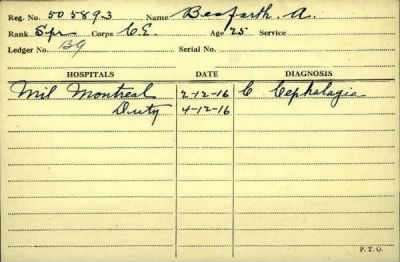 Reg. No. 505893 Name Beaforth. A.
Rank Spr Corps C.E. Age 25 Service
Ledger No. 139 Serial No.
HOSPITALS DATE DIAGNOSIS
Mil Montreal 2-12-16 C Cephalagia
Duty 4-12-16
P. T. O.